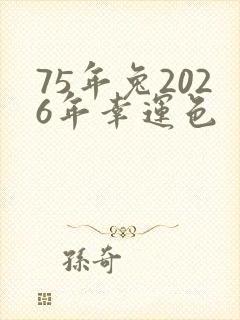 75年兔202
6年幸運色
孫奇